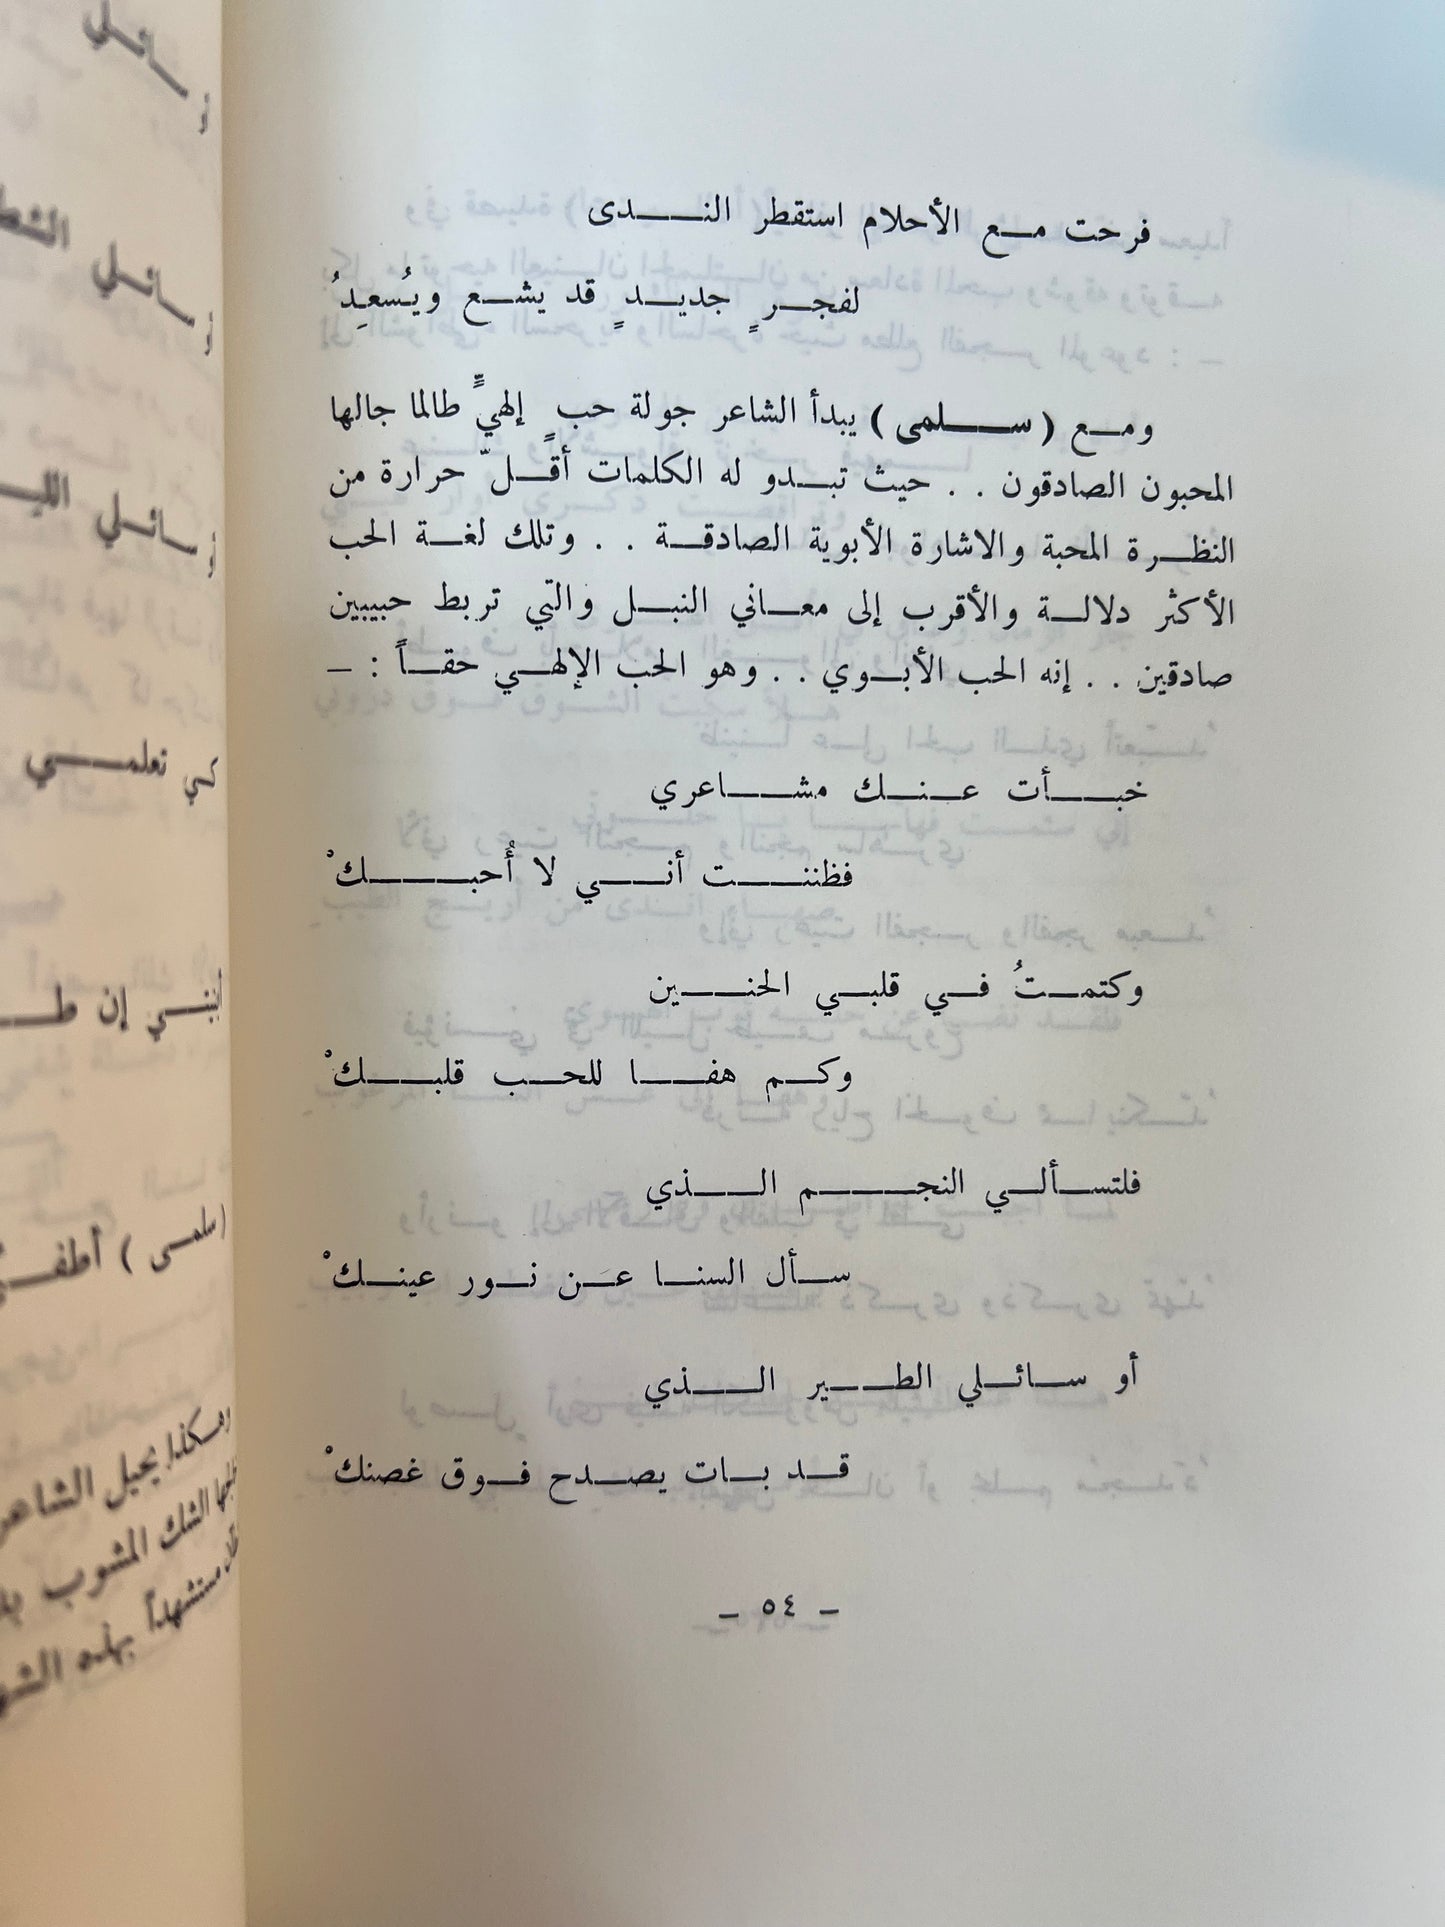 فرحت مع الأحلام استقطر الندى
لفجرٍ جديدٍ قد يشع ويُسعِدُ
ومع ( سلمى ) يبدأ الشاعر جولة حبٍ إلهيٍّ طالما جالها
المحبون الصادقون . . حيث تبدو له الكلمات أقلّ حرارة من
النظرة المحبة والاشارة الأبوية الصادقة . . وتلك لغة الحب
الأكثر دلالة والأقرب إلى معاني النبل والتي تربط حبيبين
صادقين . . إنه الحب الأبوي . . وهو الحب الإلهي حقاً : ــ
خبأت عنك مشاعري
فظننت أني لا أُحبكْ
وكتمتُ في قلبي الحنين
وكم هفا للحب قلبكْ
فلتسألي النجم الذي
سأل السنا عَن نور عينكْ
أو سائلي الطير الذي
قد بات يصدح فوق غصنكْ
ــ ٥٤ ــ
سائلي
سائلي
أو سائلي
كي تعلمي
إن
( سلمى )
وهكذا يحيل الشاعر
الشك المشوب
مستشهداً بهذه